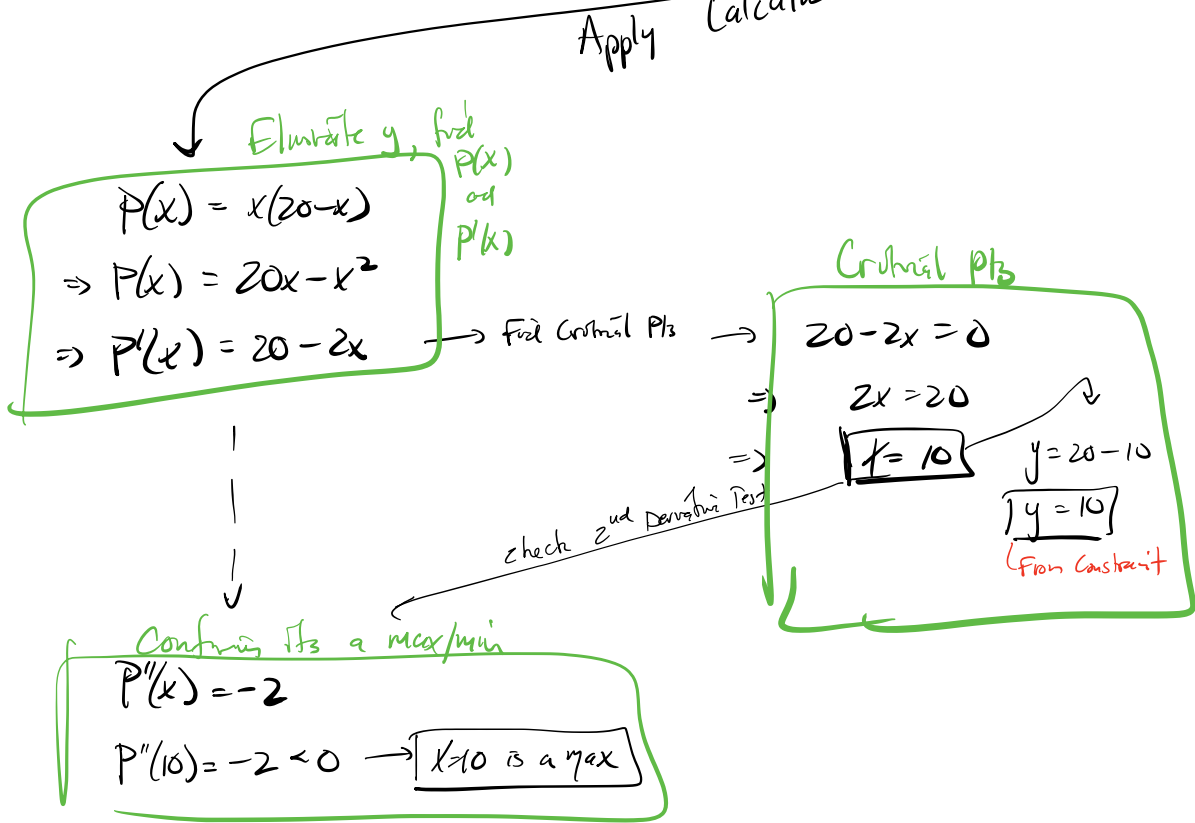 Apply Calculu
Eliminate y, find
P(x)
and
P'(x)
P(x) = x(20-x)
⇒ P(x) = 20x - x²
⇒ P'(x) = 20 - 2x
→ Find Critical Pts →
Critical pts
20 - 2x = 0
⇒ 2x = 20
⇒ x = 10
y = 20 - 10
y = 10
From Constraint
check 2nd Derivative Test
Confirm its a max/min
P''(x) = -2
P''(10) = -2 < 0 → x=10 is a max